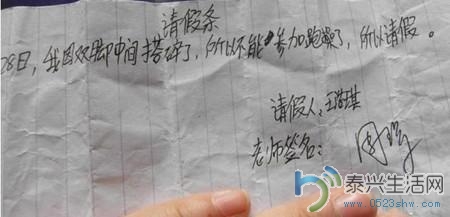 请假条
28日，我因双脚中间搭碎了，所以不能参加跑操了，所以请假。
请假人：王
老师签名：
泰兴生活网
www.0523shw.com